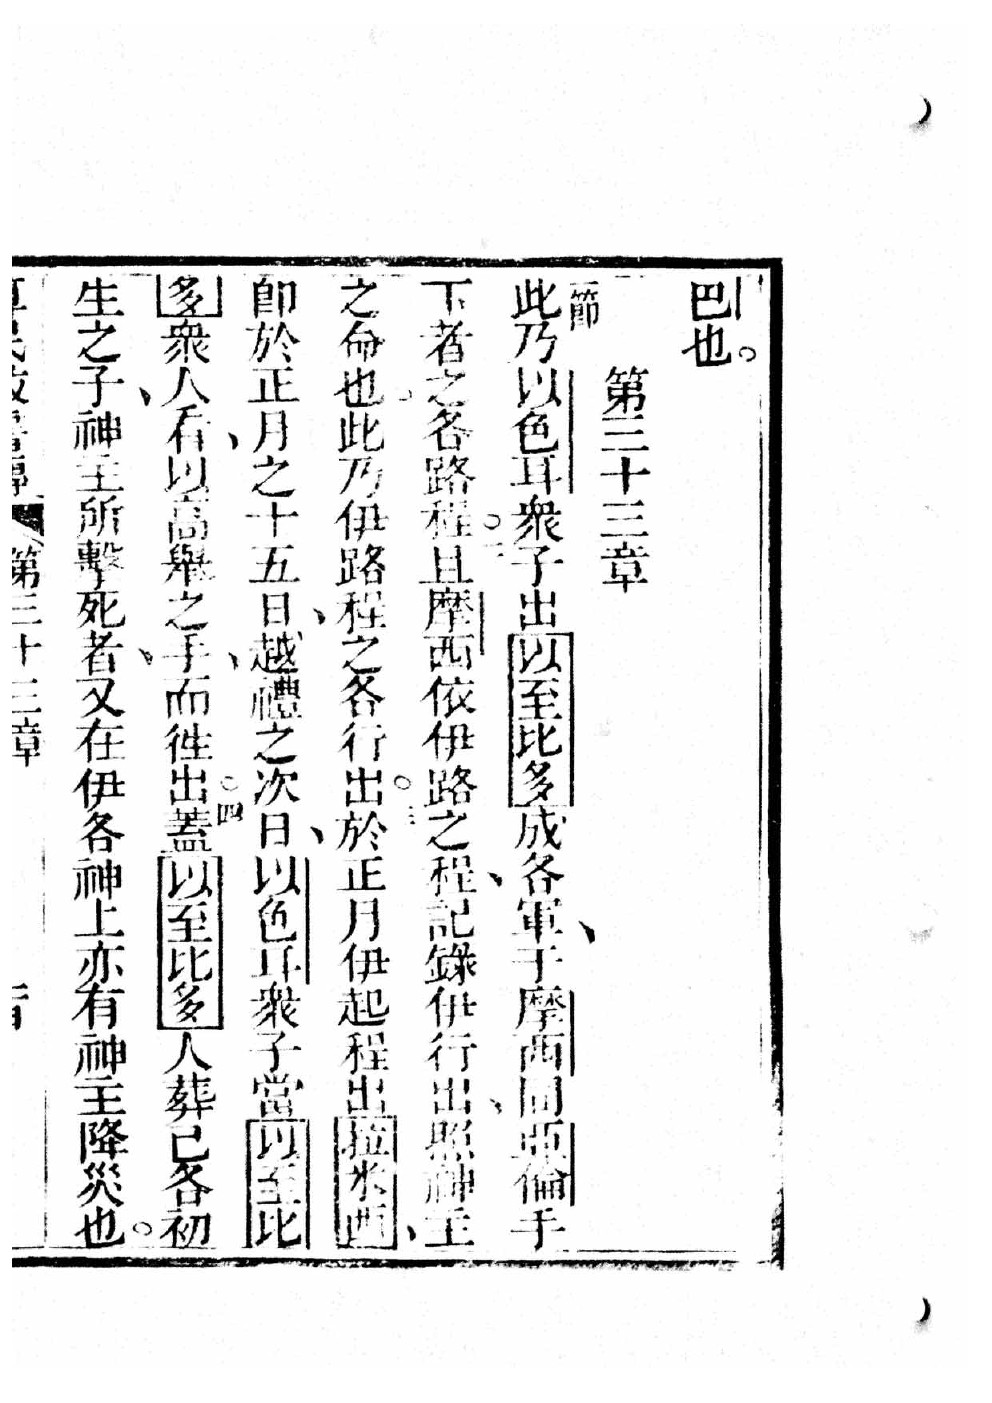 巴也。
第三十三章
節此乃以色耳衆子出以至比多成各軍、于摩西同亞倫手
下者之各路程。二且摩西依伊路之程、記錄伊行出、照神主
之命也。此乃伊路程之各行出。三於正月伊起程出拉米西、
卽於正月之十五日、越禮之次日、以色耳衆子當以至比
多衆人看、以高舉之手、而徃出。四蓋以至比多人葬已各初
生之子、神主所擊死者、又在伊各神上亦有神主降災也。
第三十三章